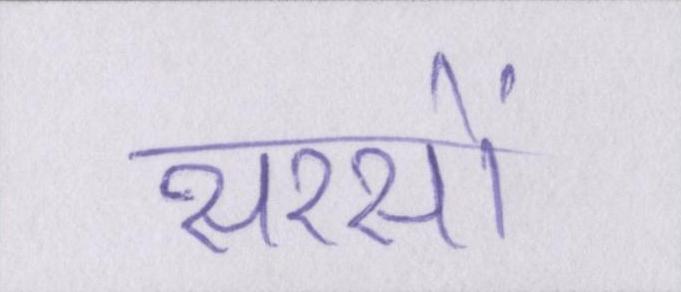 सरसों